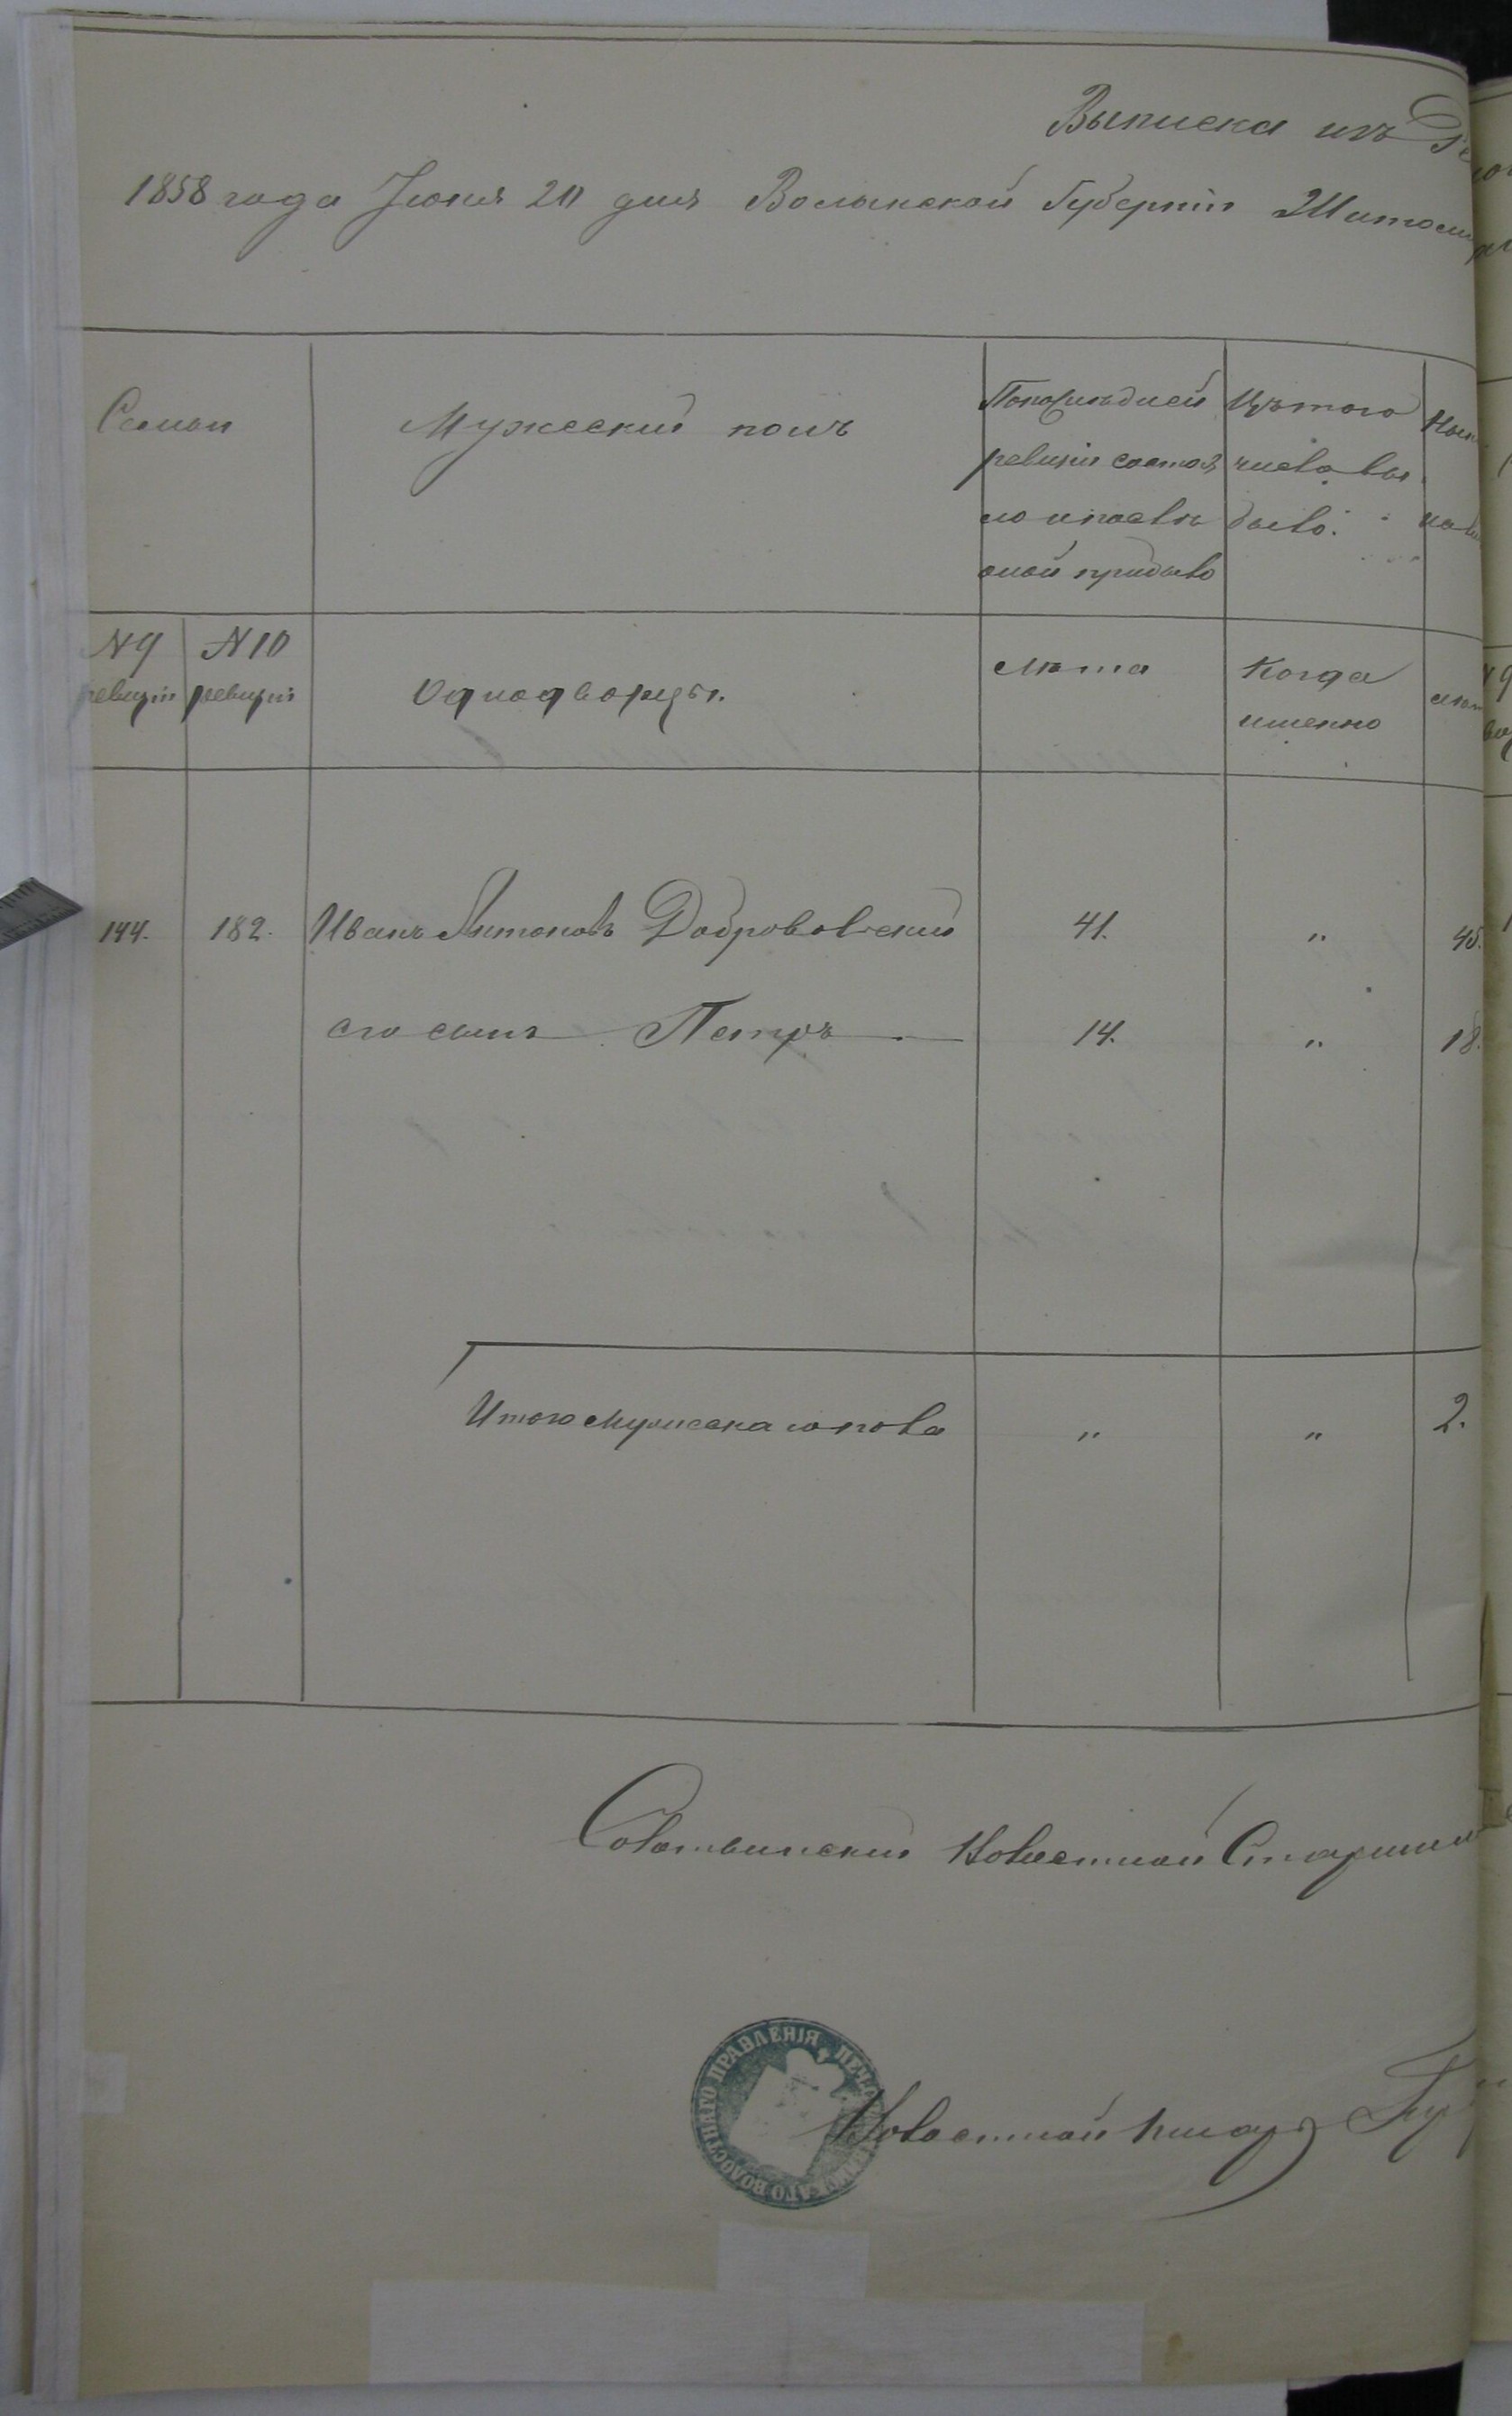 Выписка изъ
1858 года Іюня 20 дня Волынской Губерніи Житоми
Семьи
Мужеский полъ
По последней
ревизіи состоя
ло и после
оной прибыло
Изъ того
числа вы
было.
Ныне
на
N 9
ревизіи
N 10
ревизіи
Однодворцы.
лета
Когда
именно
лет
144. 182. Иванъ Антоновъ Добровольский 41. „ 45.
его сынъ Петръ 14. „ 18.
Итого мужескаго пола „ „ 2.
Солотвинский Волостной Старшина
ВОЛОСТНАГО ПРАВЛЕНІЯ
Волостной писарь